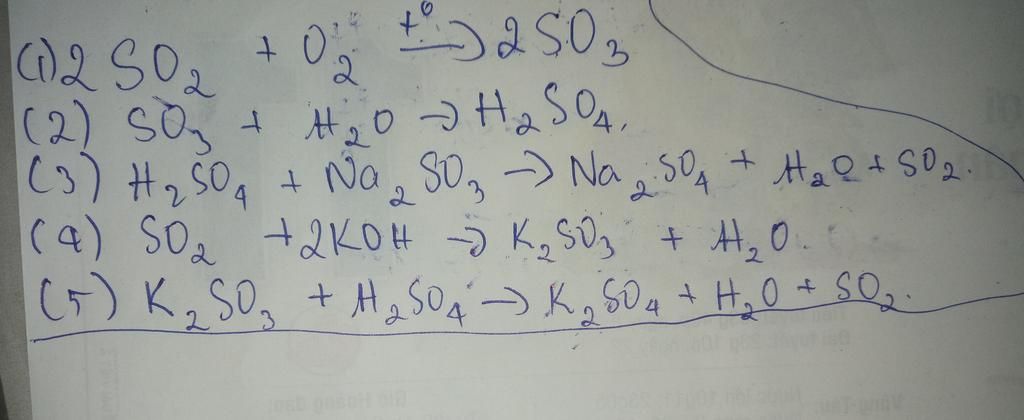 (1) 2 SO₂ + O₂ —t⁰→ 2 SO₃
(2) SO₃ + H₂O → H₂SO₄.
(3) H₂SO₄ + Na₂SO₃ → Na₂SO₄ + H₂O + SO₂.
(4) SO₂ + 2KOH → K₂SO₃ + H₂O.
(5) K₂SO₃ + H₂SO₄ → K₂SO₄ + H₂O + SO₂.